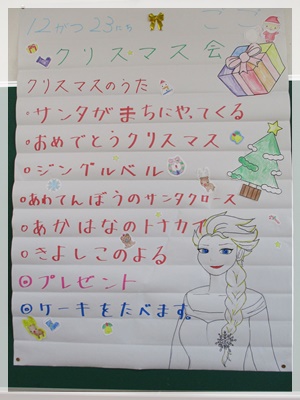 12がつ23にち ごご
クリスマス会
クリスマスのうた
・サンタがまちにやってくる
○おめでとうクリスマス
○ジングルベル
○あわてんぼうのサンタクロース
○あかはなのトナカイ
○きよしこのよる
◎プレゼント
◎ケーキをたべます。